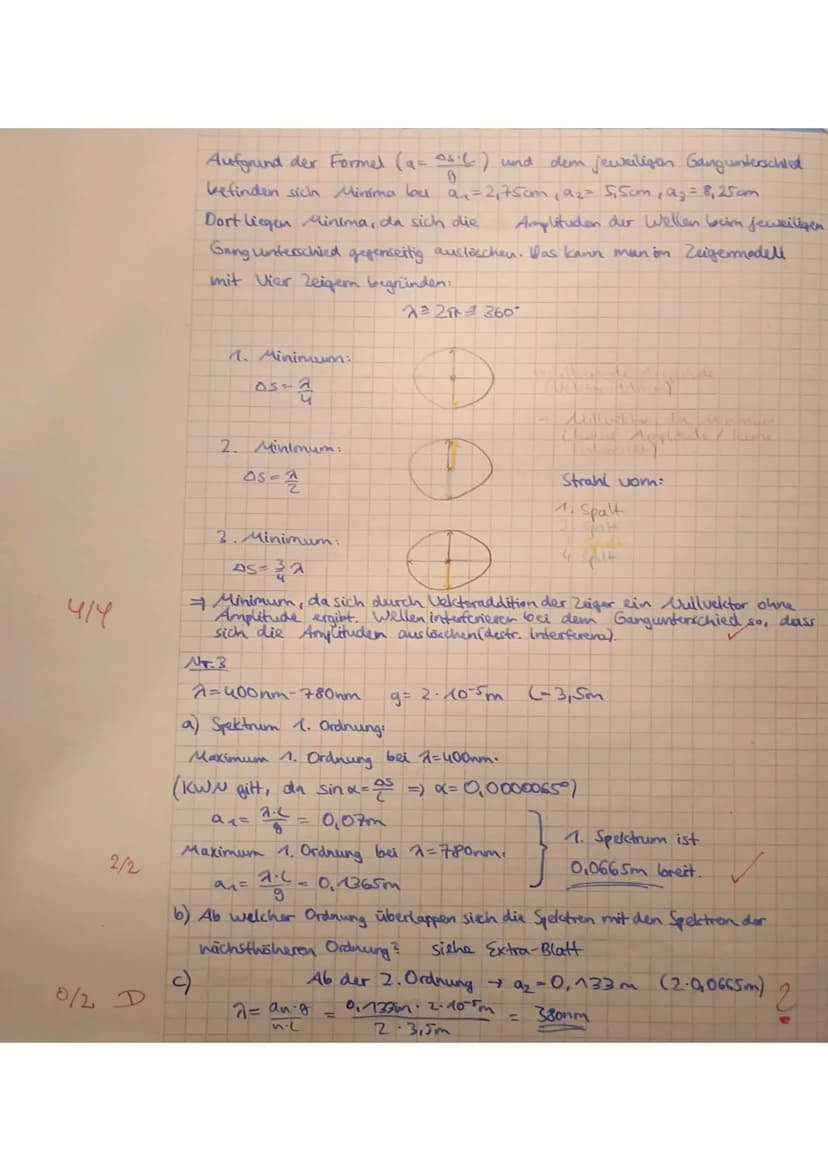 Aufgrund der Formel (a = Δs·l/g) und dem jeweiligen Gangunterschied
befinden sich Minima bei a₁=2,75cm, a₂= 5,5cm, a₃= 8,25cm
Dort liegen Minima, da sich die Amplituden der Wellen beim jeweiligen
Gangunterschied gegenseitig auslöschen. Das kann man im Zeigermodell
mit Vier Zeigern begründen:
λ ≙ 2π ≙ 360°
1. Minimum:
Δs = λ/4
2. Minimum:
Δs = λ/2
Strahl vom:
1. Spalt
4. Spalt
3. Minimum:
Δs = 3/4 λ
4/4
⇒ Minimum, da sich durch Vektoraddition der Zeiger ein Nullvektor ohne
Amplitude ergibt. Wellen interferieren bei dem Gangunterschied so, dass
sich die Amplituden auslöschen (destr. Interferenz).
Nr. 3
λ=400nm-780nm g= 2·10⁻⁵m l=3,5m
a) Spektrum 1. Ordnung:
Maximum 1. Ordnung bei λ=400nm.
(KWN gilt, da sin α = Δs/l ⇒ α= 0,0000065°)
a₁= λ·l/g = 0,07m
Maximum 1. Ordnung bei λ=780nm.
a₁= λ·l/g = 0,1365m
1. Spektrum ist
0,0665m breit.
2/2
b) Ab welcher Ordnung überlappen sich die Spektren mit den Spektren der
nächsthöheren Ordnung? siehe Extra-Blatt
c) Ab der 2. Ordnung → a₂=0,133m (2·0,0665m) ?
0/2 D
λ= an·g/n·l = 0,133m · 2·10⁻⁵m/2·3,5m = 380nm